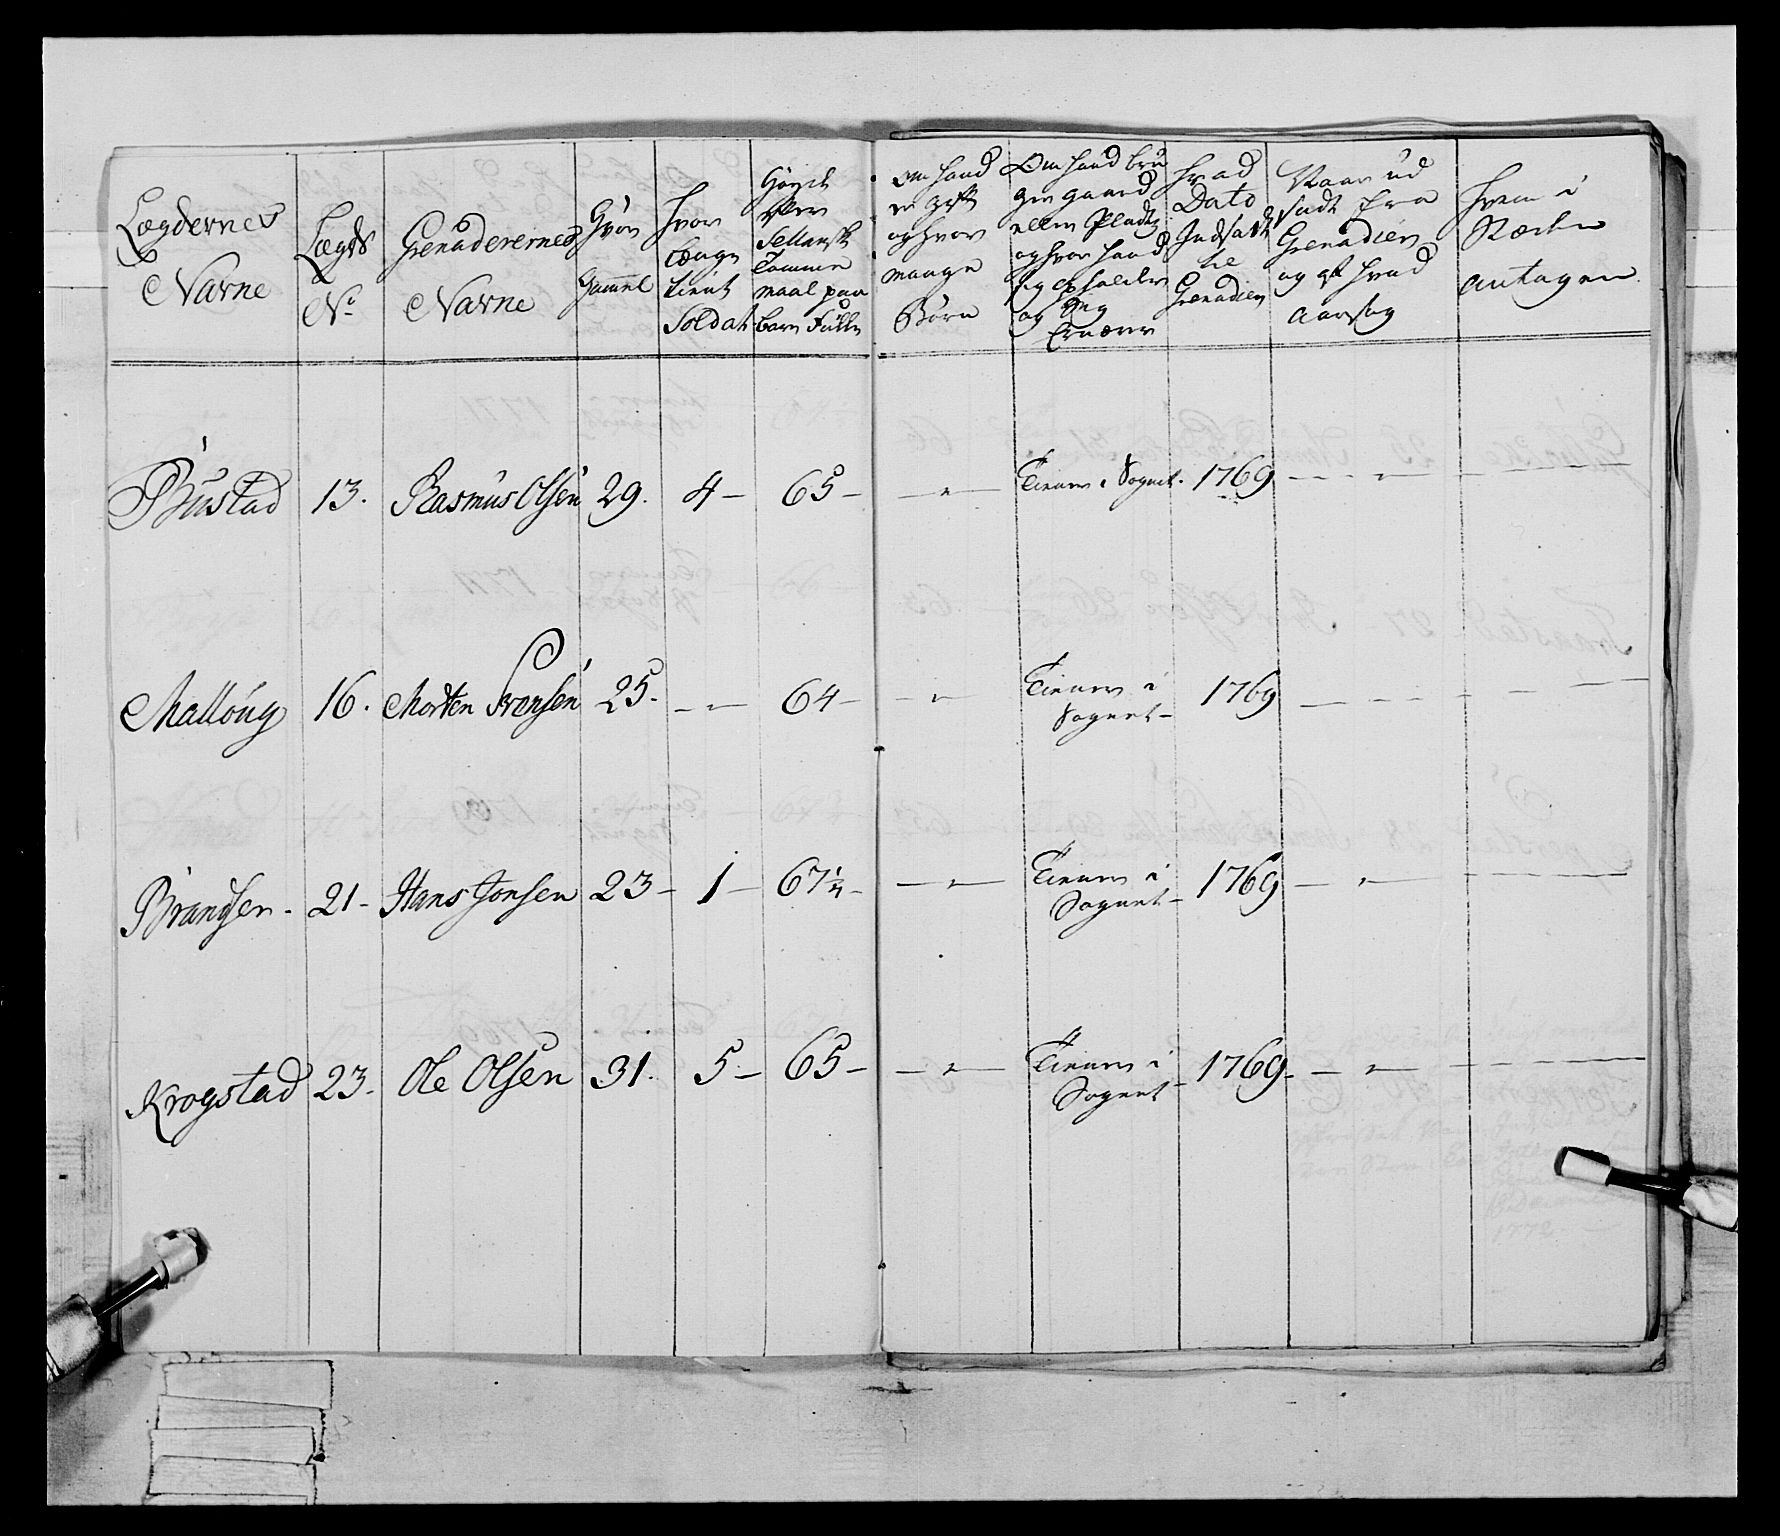 Lægdernes Navne
Lægds No
Grenaderernes Navne
Hvor Gammel
Hvor længe tient Soldat
Høyde efter Sellansk Tomme maal paa bare Fødder
Om hand er gift og hvor mange Børn
Om hand bruger gaard eller Pladtz og hvor hand sig opholder og sig Ernærer
Hvad Dato Indsadt til Grenadier
Naar udsadt fra Grenadier og af hvad Aarsag
Hvem i Stæden antagen
Bustad 13. Rasmus Olsen 29. 4 – 65 – – " – Tiener i Sognet. 1769 – – " –
Malløug 16. Morten Svensen 25. – – 64 – " – Tiener i
Sognet – 1769 – – –
Brandsen. 21 – Hans Jonsen 23 – 1 – 67 1/4 – – " – Tiener i
Sognet – 1769 – " –
Krogstad 23. Ole Olsen 31. 5 – 65 – – " – Tiener i
Sognet – 1769 – – " –